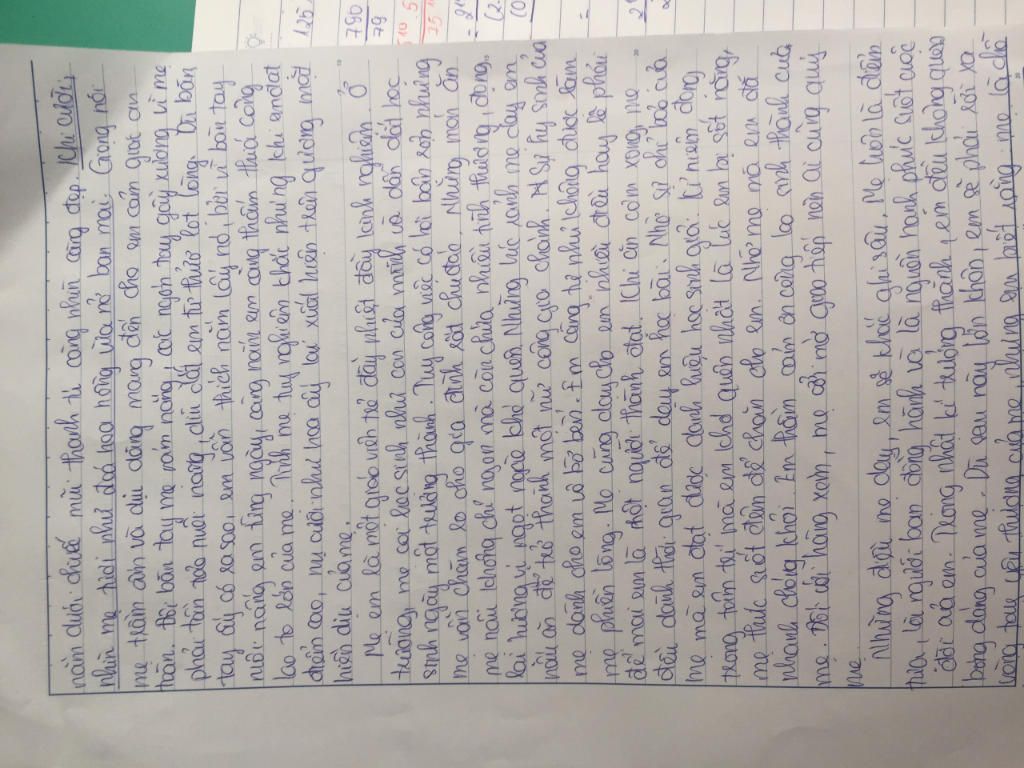 nằm dưới chiếc mũi thanh tú càng nhìn càng đẹp. Khi cười,
nhìn mẹ tươi như đoá hoa hồng vừa nở ban mai. Giọng nói
mẹ trầm ấm và dịu dàng mang đến cho em cảm giác an
toàn. Đôi bàn tay mẹ rám nắng, các ngón tay gầy xương vì mẹ
phải tần tảo nuôi nấng, dìu dắt em từ thuở lọt lòng. Dù bàn
tay ấy có sơ sao, em vẫn thích nắm lấy nó, bởi vì bàn tay
nuôi nấng em từng ngày, càng nắm em càng thấm thía công
lao to lớn của mẹ. Tính mẹ tuy nghiêm khắc nhưng khi em đạt
điểm cao, nụ cười như hoa ấy lại xuất hiện trên gương mặt
hiền dịu của mẹ.
Mẹ em là một giáo viên trẻ đầy nhiệt đầy kinh nghiệm. Ở
trường, mẹ coi học sinh như con của mình và dẫn dắt học
sinh ngày một trưởng thành. Tuy công việc có hơi bận rộn nhưng
mẹ vẫn chăm lo cho gia đình rất chu đáo. Những món ăn
mẹ nấu không chỉ ngon mà còn chứa nhiều tình thương, đọng
lại hương vị ngọt ngào khó quên. Những lúc rảnh mẹ dạy em
nấu ăn để trở thành một nữ công gia chánh. Sự hy sinh của
mẹ dành cho em vô bờ bến. Em càng tự nhủ không được làm
mẹ phiền lòng. Mẹ cũng dạy cho em nhiều điều hay lẽ phải
để mai em là một người thành đạt. Khi ăn cơm xong, mẹ
đều dành thời gian để dạy em học bài. Nhờ sự chỉ bảo của
mẹ mà em đạt được danh hiệu học sinh giỏi. Kỉ niệm đọng
trong tâm trí mà em khó quên nhất là lúc em bị sốt nặng,
mẹ thức suốt đêm để chăm cho em. Nhờ mẹ mà em đã
nhanh chóng khỏi. Em thầm cảm ơn công lao sinh thành của
mẹ. Đối với hàng xóm, mẹ cởi mở giao tiếp nên ai cũng quý
mẹ.
Những điều mẹ dạy, em sẽ khắc ghi sâu. Mẹ luôn là điểm
tựa, là người bạn đồng hành và là nguồn hạnh phúc suốt cuộc
đời của em. Trong nhất kí trưởng thành, em đều không quên
bóng dáng của mẹ. Dù sau này lớn khôn, em sẽ phải rời xa
vòng tay yêu thương của mẹ, nhưng em biết rằng mẹ là chỗ
790
79